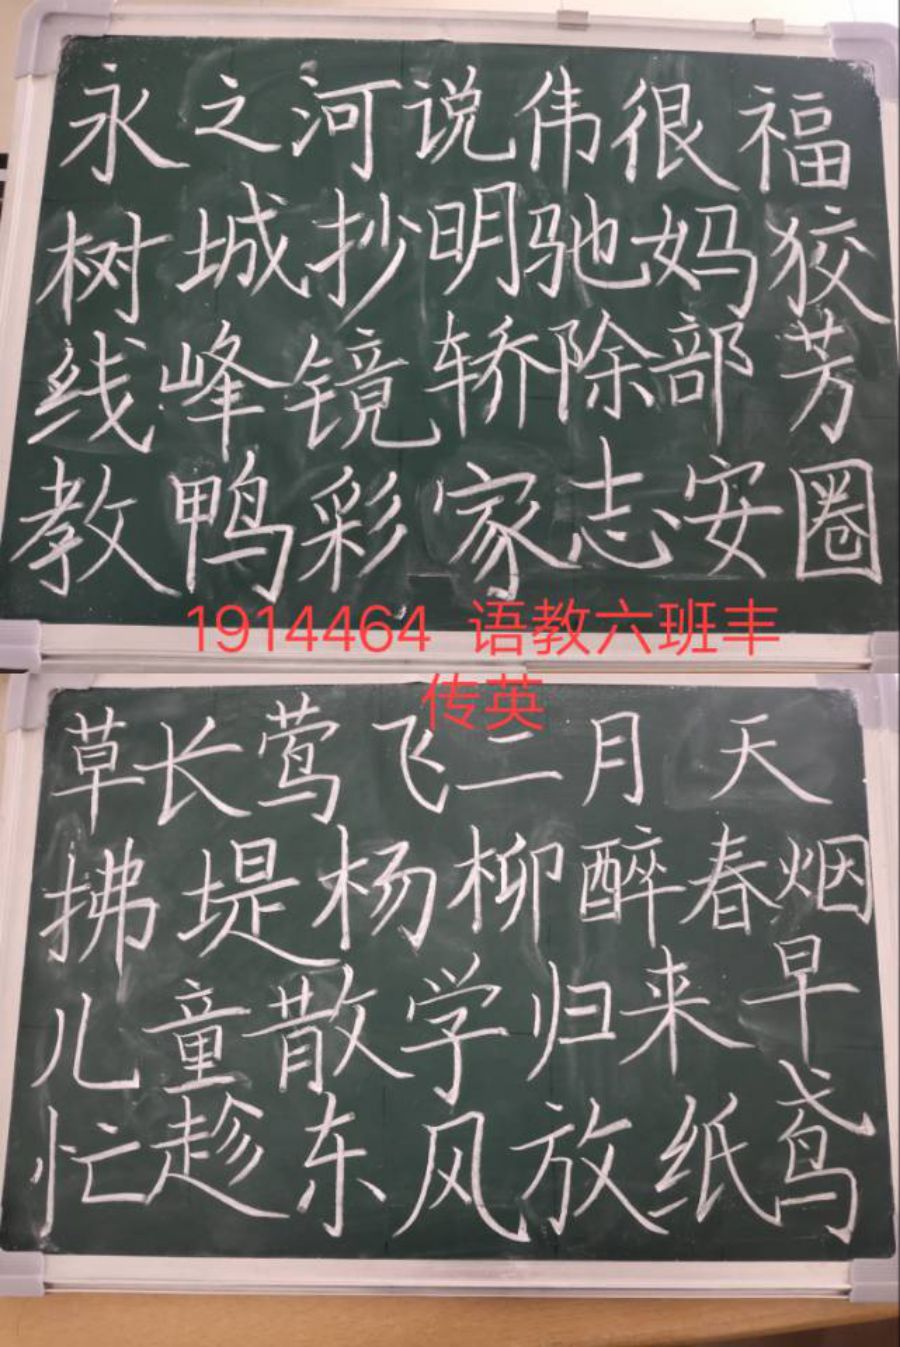 永之河说伟很福
树城抄明驰妈狡
线峰镜轿除部芳
教鸭彩家志安圈
1914464 语教六班丰
传英
草长莺飞二月天
拂堤杨柳醉春烟
儿童散学归来早
忙趁东风放纸鸢